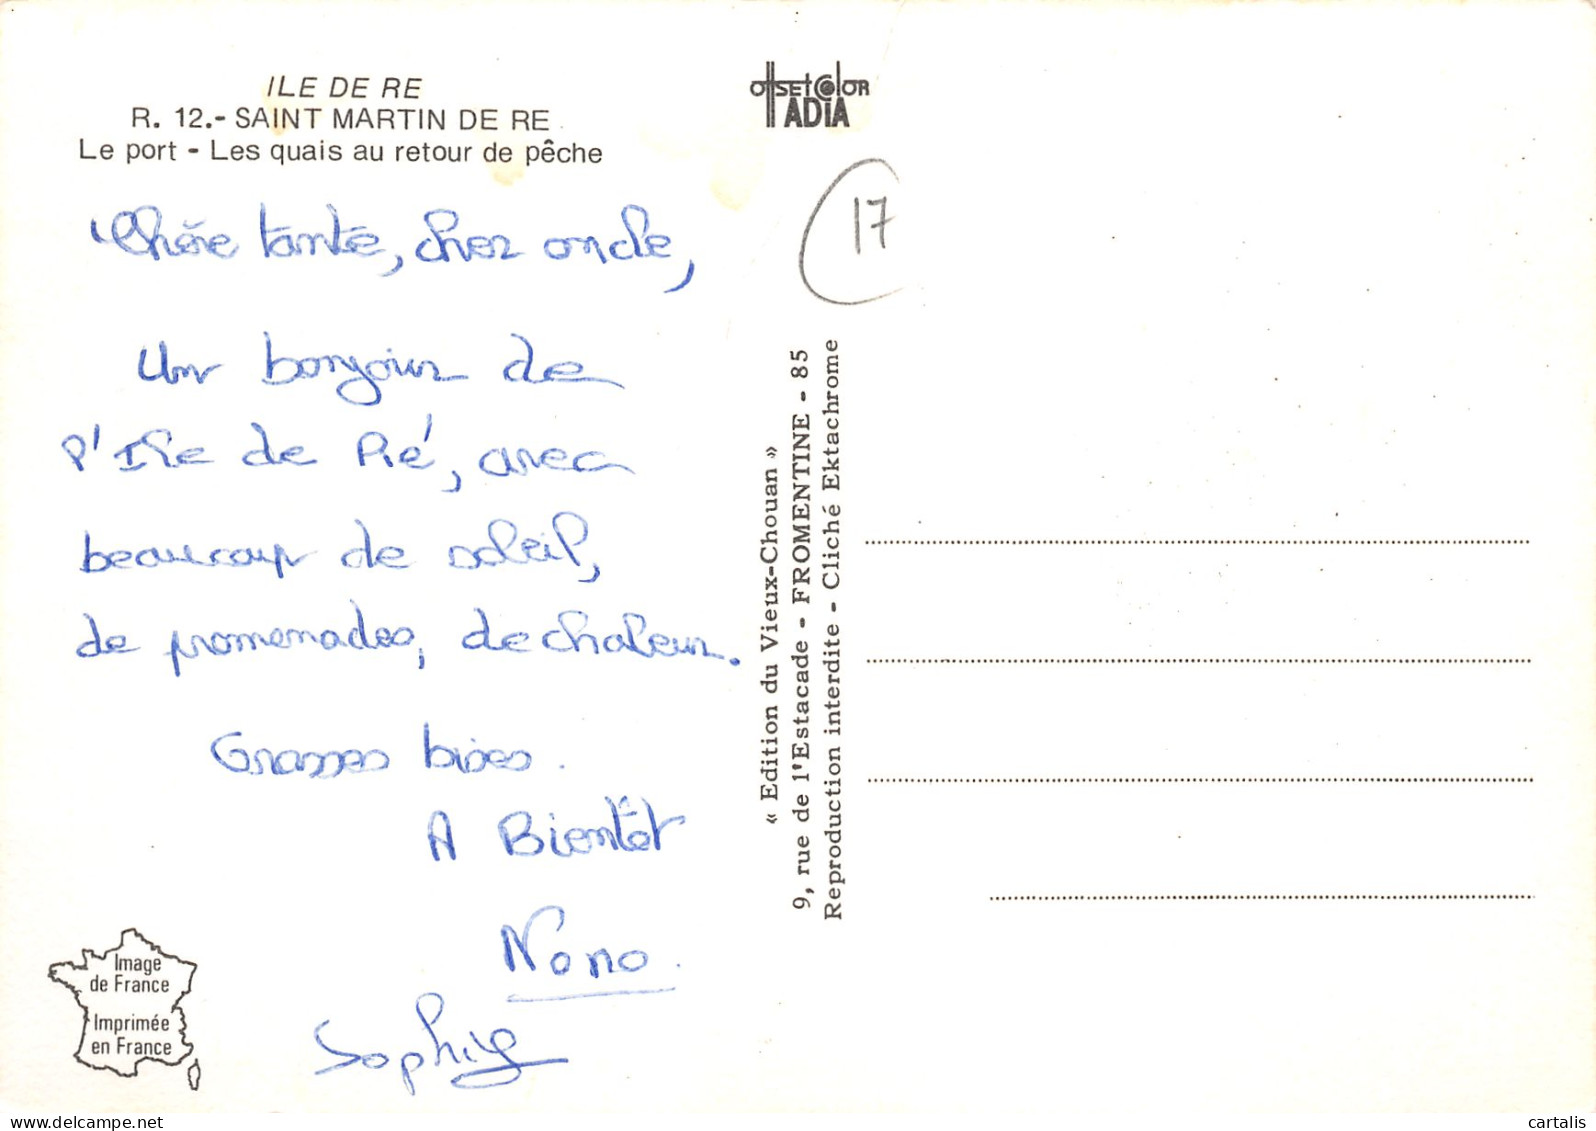 ILE DE RE
R. 12.- SAINT MARTIN DE RE
Le port - Les quais au retour de pêche
Chère tante, cher oncle,
Un bonjour de
l'Ile de Ré, avec
beaucoup de soleil,
de promenades, de chaleur.
Grosses bises.
A Bientôt
Nono.
Sophie
Image
de France
Imprimée
en France
OffSET COlOR
ADIA
17
« Edition du Vieux-Chouan »
9, rue de l'Estacade - FROMENTINE - 85
Reproduction interdite - Cliché Ektachrome
delcampe.net
cartalis